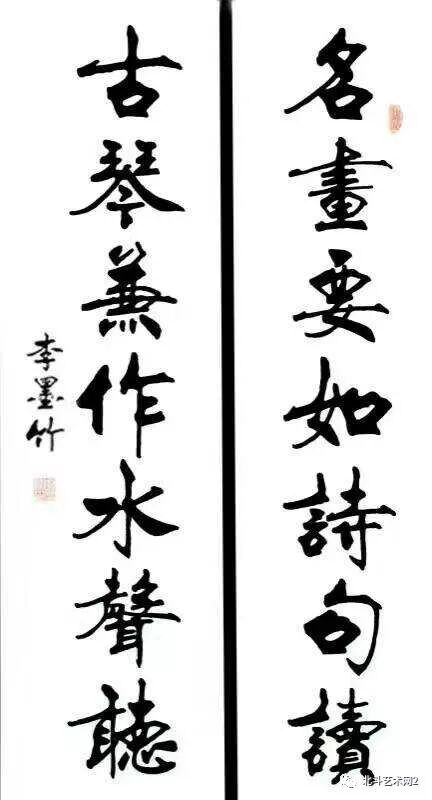 名畫要如詩句讀
古琴兼作水聲聽
李墨竹
北斗艺术网2